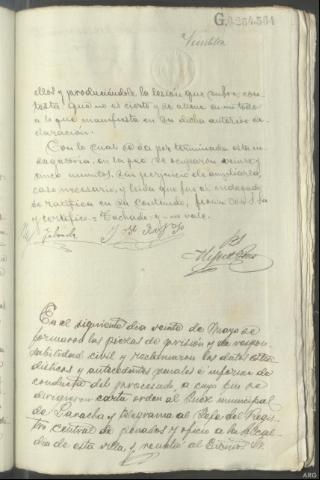 G.0264,564
ellos y produciéndole la lesión que sufre con-
testa: Que no es cierto y se atiene en un todo
a lo que manifiesta en su dicha anterior de-
claración.
Con lo cual se da por terminada esta in-
dagatoria, en la que se ocuparon veinte y
cinco minutos, sin perjuicio de ampliarla
caso necesario, y leida que fue al indagado
se ratifica en su contenido, firma con S. Sª
y certifico = Tachado = y = no vale.
En el siguiente dia veinte de Mayo se
formaron las piezas de prisión y de respon-
sabilidad civil y reclamaron los datos esta-
dísticos y antecedentes penales é informe de
conducta del procesado, a cuyo fin se
dirigieron carta orden al Juez municipal
de telegrama al Jefe del Regis-
tro Central de penados y oficio a la Alcal-
dia de esta villa, y